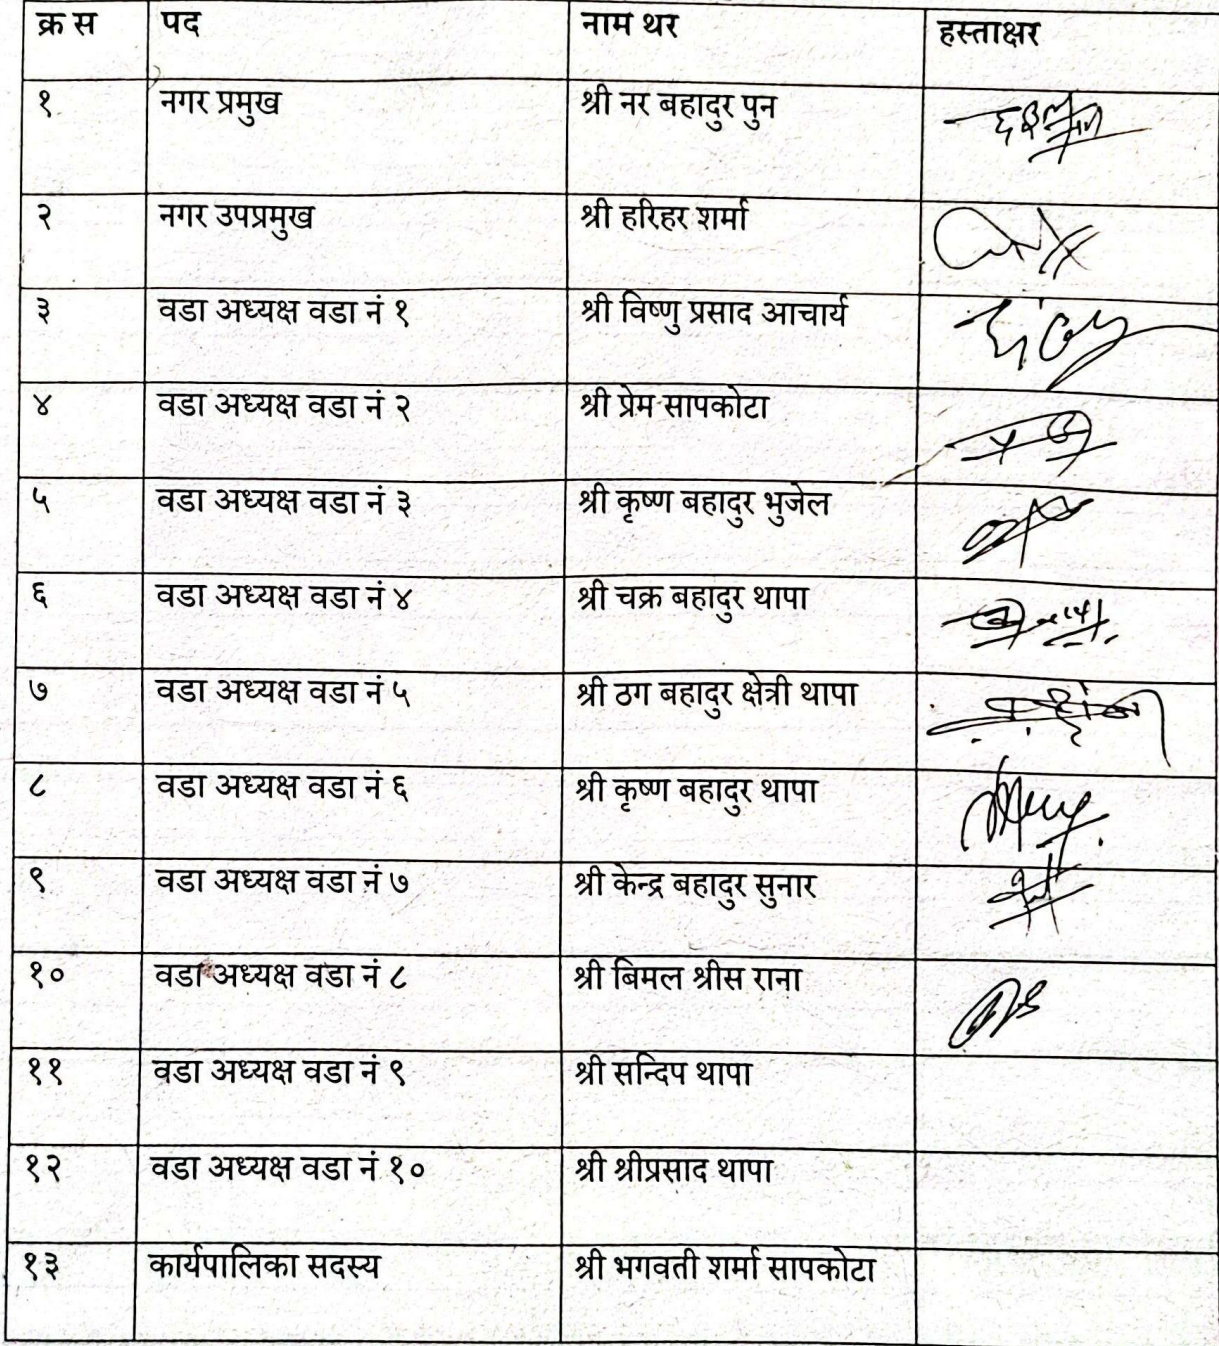 क्र स पद नाम थर हस्ताक्षर
१ नगर प्रमुख श्री नर बहादुर पुन
२ नगर उपप्रमुख श्री हरिहर शर्मा
३ वडा अध्यक्ष वडा नं १ श्री विष्णु प्रसाद आचार्य
४ वडा अध्यक्ष वडा नं २ श्री प्रेम सापकोटा
५ वडा अध्यक्ष वडा नं ३ श्री कृष्ण बहादुर भुजेल
६ वडा अध्यक्ष वडा नं ४ श्री चक्र बहादुर थापा
७ वडा अध्यक्ष वडा नं ५ श्री ठग बहादुर क्षेत्री थापा
८ वडा अध्यक्ष वडा नं ६ श्री कृष्ण बहादुर थापा
९ वडा अध्यक्ष वडा नं ७ श्री केन्द्र बहादुर सुनार
१० वडा अध्यक्ष वडा नं ८ श्री बिमल श्रीस राना
११ वडा अध्यक्ष वडा नं ९ श्री सन्दिप थापा
१२ वडा अध्यक्ष वडा नं १० श्री श्रीप्रसाद थापा
१३ कार्यपालिका सदस्य श्री भगवती शर्मा सापकोटा